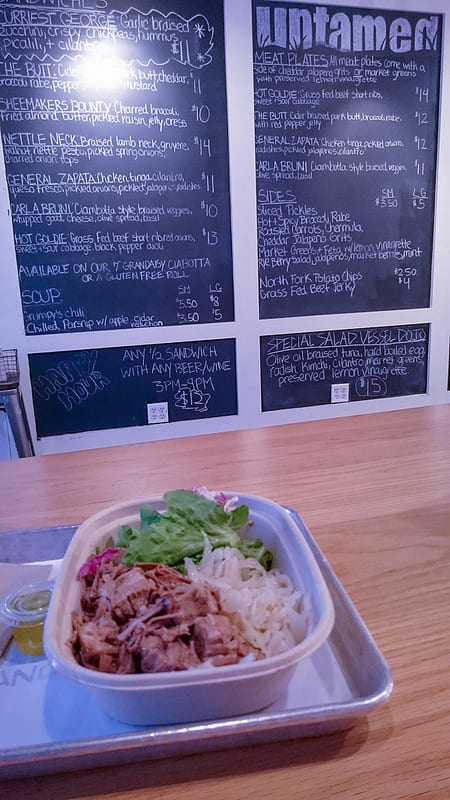 SANDWICHES
CURRIEST GEORGE Garlic braised
zucchini, crispy chickpeas, hummus,
picalilli, + cilantro $11
THE BUTT: Cider pork butt, cheddar,
broccoli rabe, pepper mustard $11
SHEEMAKERS BOUNTY Charred broccoli,
fried almond butter, pickled raisin, jelly, cress $10
NETTLE NECK Braised lamb neck, gruyere,
walnut nettle pesto, pickled spring onions,
charred onion tops $14
GENERAL ZAPATA Chicken tinga, cilantro,
queso fresco, pickled onions, pickled jalapeños, radishes $11
CARLA BRUNI: Ciambotta style braised veggies,
whipped goat cheese, olive spread, basil $10
HOT GOLDIE: Grass fed beef short rib, red onions,
sweet + sour cabbage black pepper aioli $13
AVAILABLE ON OUR 7" GRANDAISY CIABOTTA
OR A GLUTEN FREE ROLL
SOUP: SM LG
Grumpy's chili 5.50 $8
Chilled Parsnip w/ apple cider reduction 3.50 $5
HAPPY HOUR
ANY 1/2 SANDWICH
WITH ANY BEER/WINE
3PM-9PM
$12
untamed
MEAT PLATES All meat plates come with a
side of cheddar jalapeno grits or market greens
with preserved lemon vinaigrette
HOT GOLDIE Grass fed beef short ribs,
sweet + sour cabbage $14
THE BUTT Cider braised pork butt, broccoli rabe,
with red pepper jelly $12
GENERAL ZAPATA: Chicken tinga, pickled onions,
radishes, pickled jalapenos, cilantro $12
CARLA BRUNI Ciambotta style braised veggies,
olive spread, basil $11
SIDES SM LG
Sliced Pickles $3.50 $5
Hot + Spicy Broccoli Rabe
Roasted Carrots, Chermula,
Cheddar Jalapeno Grits
Market Greens + Feta w/ lemon vinaigrette
Rye Berry Salad, jalapenos, market berries, mint
North Fork Potato Chips $2.50
Grass Fed Beef Jerky $4
SPECIAL SALAD VESSEL DOJO
Olive oil braised tuna, hard boiled egg,
radish, Kimchi, Cilantro market greens,
preserved lemon vinaigrette
$15